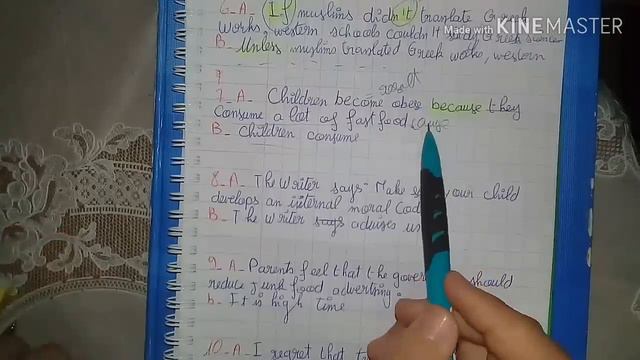 6-A- If muslims didn't translate Greek
works, western schools couldn't study Greek science
B- Unless muslims translated Greek works, western
Made with KINEMASTER
7
7-A- Children become obese because they
consume a lot of fast food (cause
B- Children consume
8-A- The writer says "Make your child
develops an internal moral Code
B- The writer says advises us
9-A- Parents feel that the should
reduce junk food advertning.
b- It is high time
10-A- I regret that